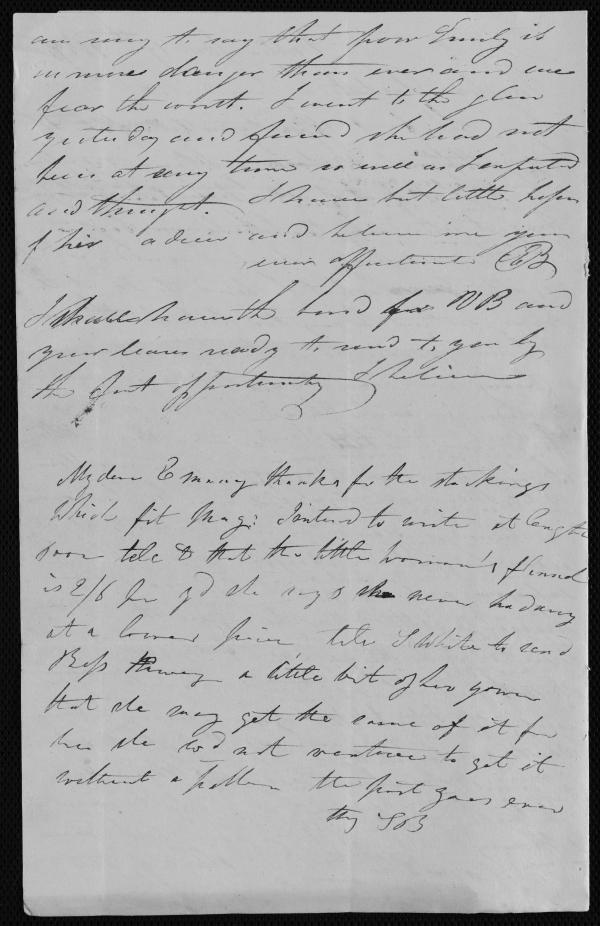 am sorry to say that poor Emily is
in more danger than ever and we
fear the worst. I went to the glen
yesterday and found she had not
been at any time so well as I expected
and thought. I have but little hopes
of her adieu and believe me your
ever affectionate EB
I shall have the bond for NB and
your leases ready to send to you by
the first opportunity I believe
My dear E many thanks for the stockings
which fit Mag: I intend to write at length
soon tell D that the little woman's flannel
is 2/6 per yd she says she never had any
at a lower price, tell S White to send
Bess a little bit of her gown
that she may get the same of it for
her she wd not venture to get it
without a pattern the post goes ever
thy SB